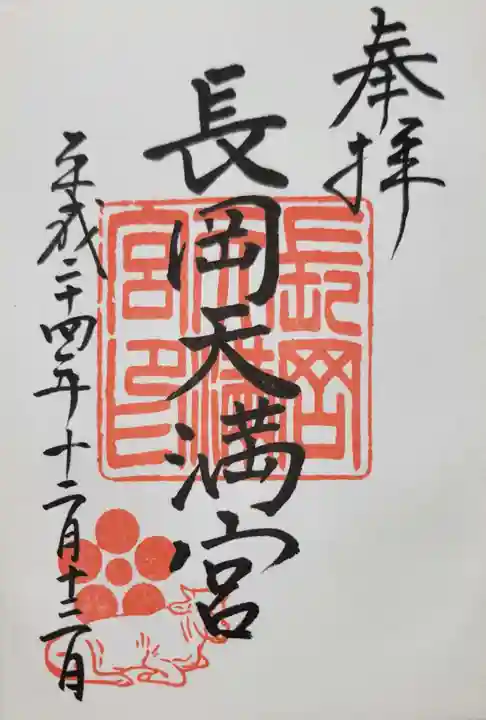 奉拝
長岡天満宮
平成二十四年十二月十三日
長岡
天満
宮印